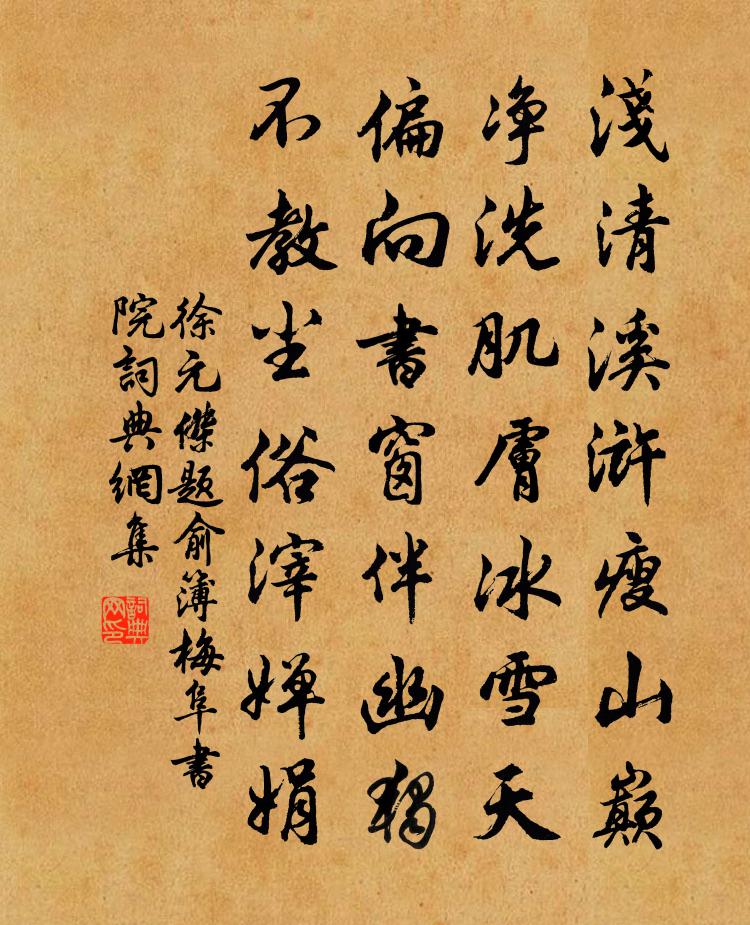 淺清溪滸瘦山巔
净洗肌膚冰雪天
偏向書窗伴幽獨
不教尘俗滓嬋娟
徐元傑題俞簿梅阜書
院詞典網集
詞典
网印